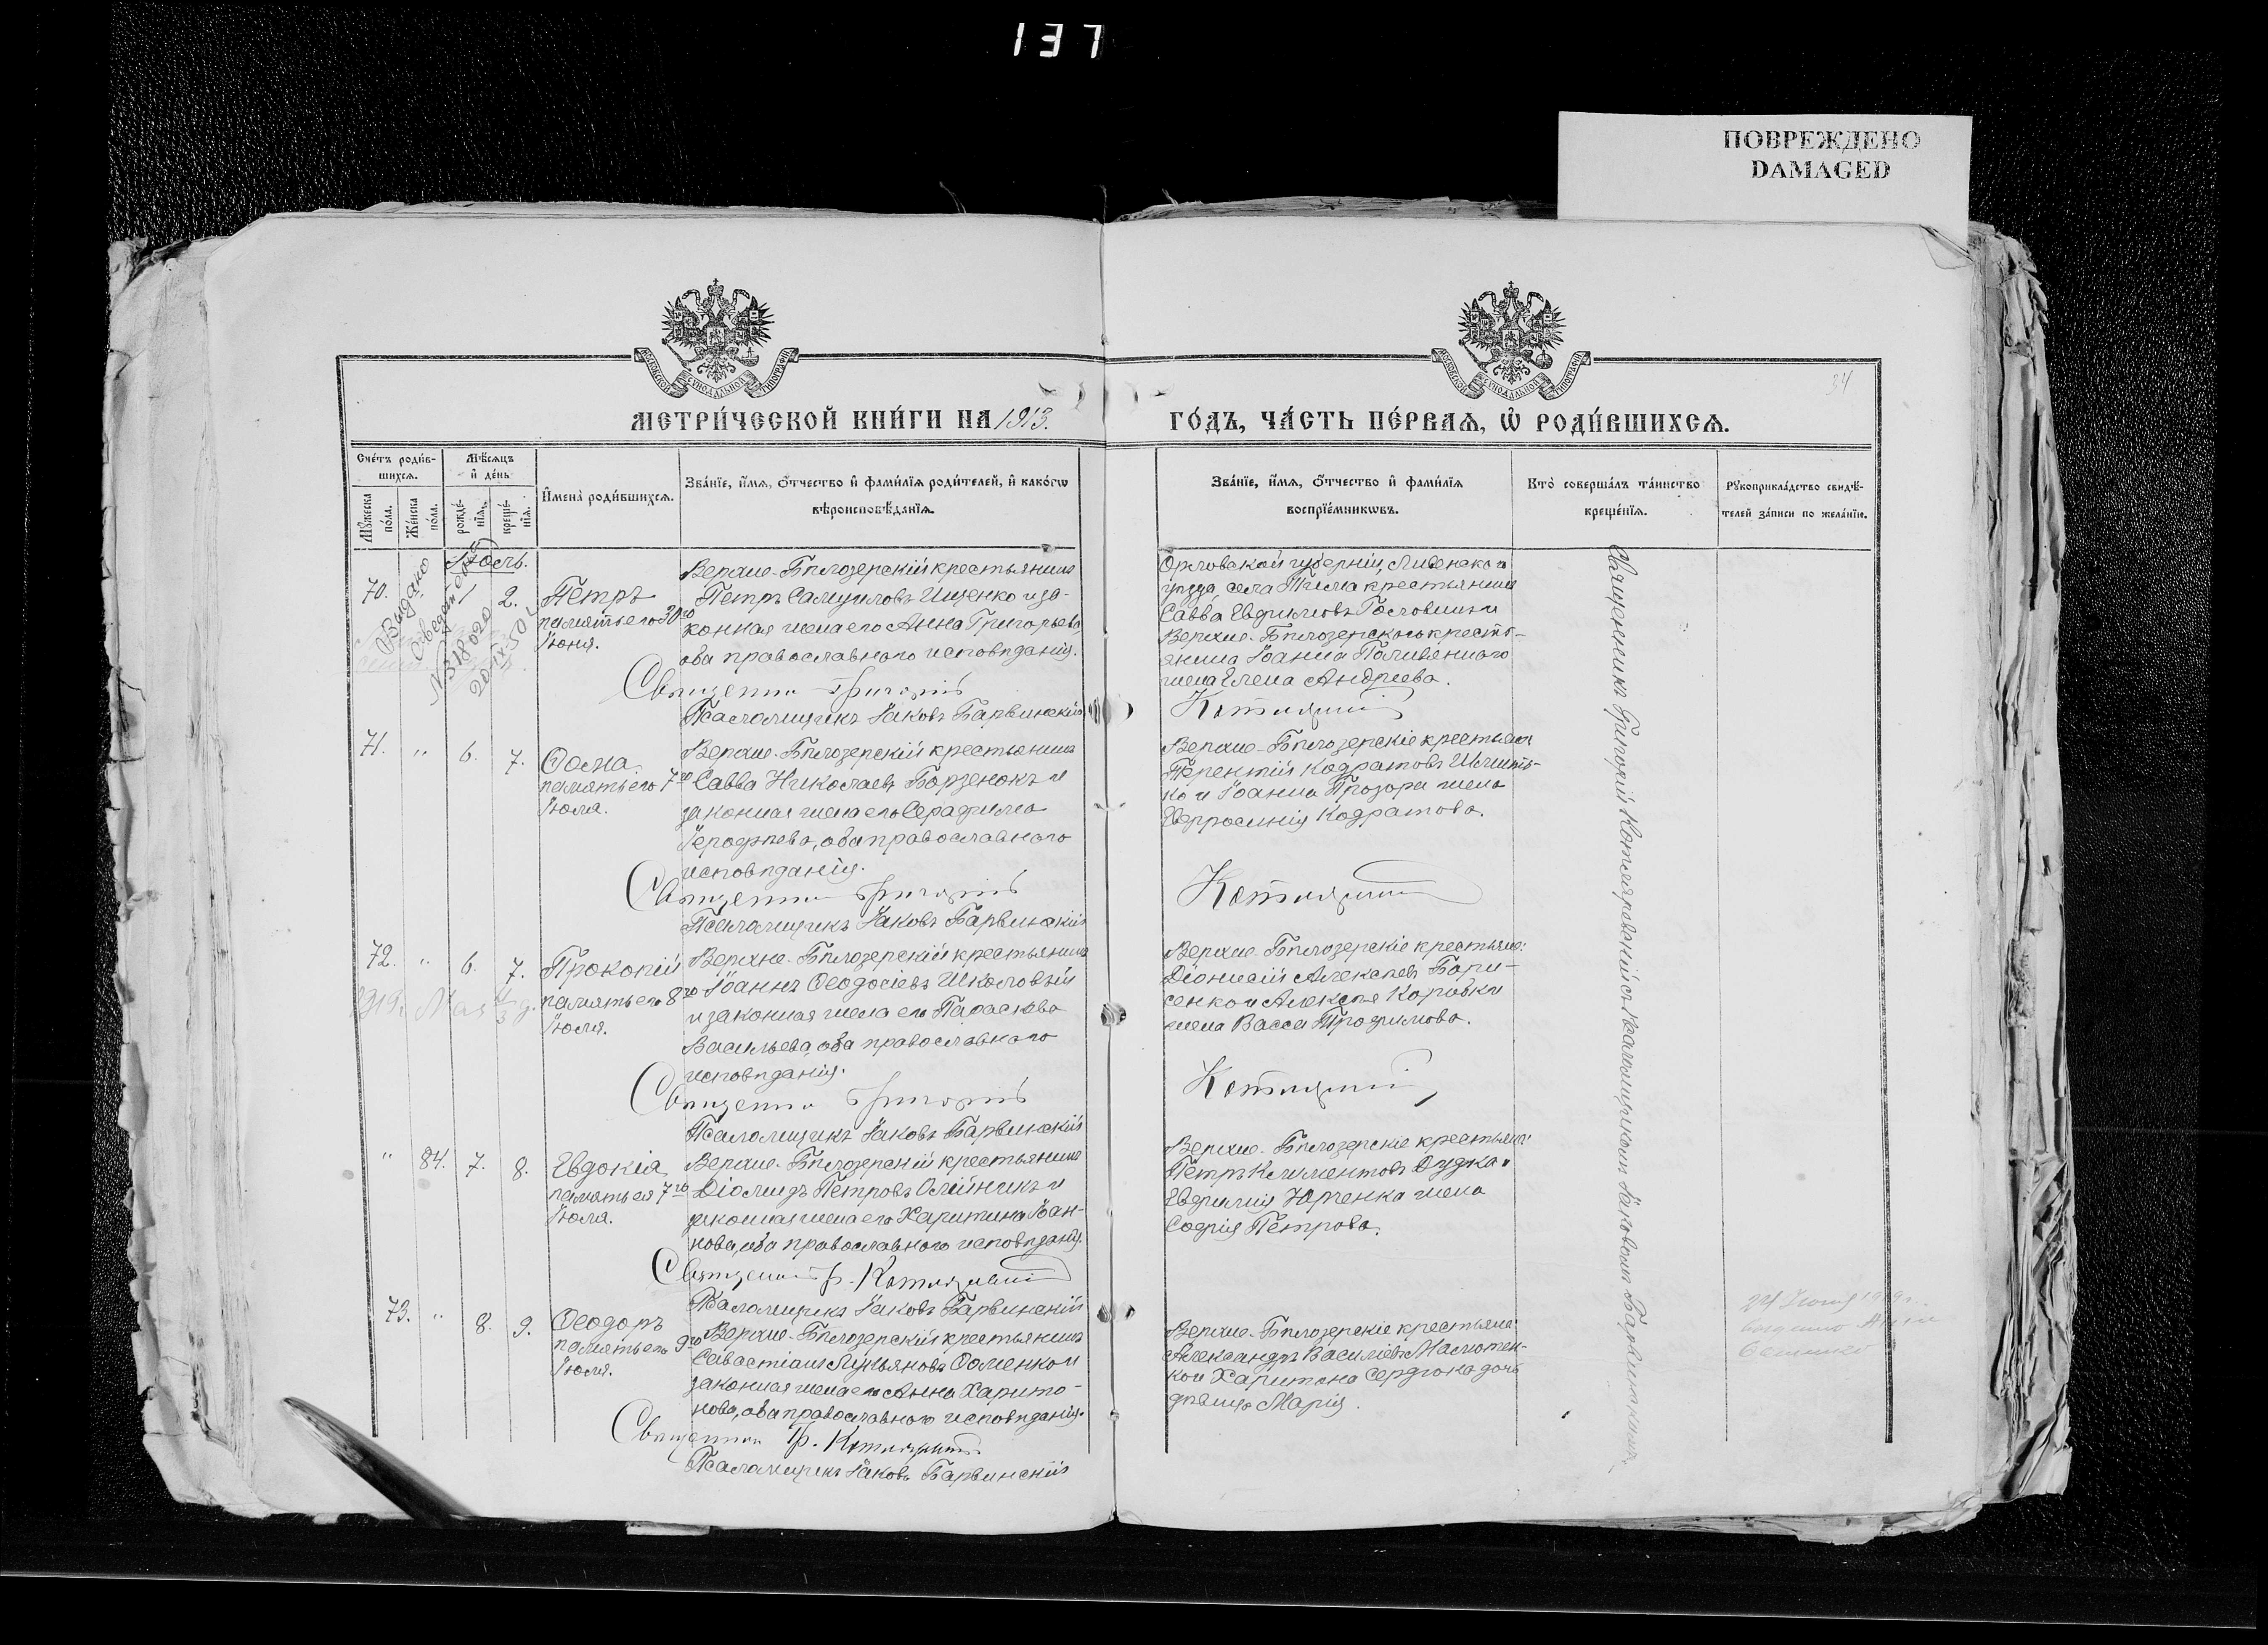 137
ПОВРЕЖДЕНО
DAMAGED
МОСКОВСКОЙ СѴНОДАЛЬНОЙ ТИПОГРАФІИ
МОСКОВСКОЙ СѴНОДАЛЬНОЙ ТИПОГРАФІИ
34
МЕТРИ́ЧЕСКОЙ КНИ́ГИ НА 1913.
ГО́ДЪ, ЧА́СТЬ ПЕ́РВАѦ, Ѡ҆ РОДИ́ВШИХСѦ.
Сче́тъ роди́в-
шихсѧ.
Мѣ́сѧцъ
и҆ де́нь
Мꙋ́жеска по́ла.
Же́нска по́ла.
рожде́-
нїѧ.
креще́-
нїѧ.
И҆мена̀ роди́вшихсѧ.
Зва́нїе, и҆́мѧ, ѻ҆́тчество и҆ фами́лїѧ роди́телей, и҆ како́гѡ
вѣроисповѣ́данїѧ.
Зва́нїе, и҆́мѧ, ѻ҆́тчество и҆ фами́лїѧ
воспрїе́мникѡвъ.
Кто̀ соверша́лъ та́инство
креще́нїѧ.
Рꙋкоприкла́дство свидѣ́-
телей за́писи по жела́нїю.
Іюль.
70.
2.
Выдано
№318020
Петръ
память его 30го
Іюня.
Верхне-Бѣлозерскій крестьянинъ
Петръ Самуиловъ Ищенко и за-
конная жена его Анна Григорьева,
оба православнаго исповѣданія.
Священникъ Григорій
Котляревскій
Псаломщикъ Іаковъ Барвинскій
Орловской губерніи, Ливенскаго
уѣзда, села Тима крестьянинъ
Савва Евфимовъ
Верхне-Бѣлозерскаго кресть-
янина Іоанна
жена Елена Андреева.
71.
"
6.
7.
Ѳома
память его 7го
Іюля.
Верхне-Бѣлозерскій крестьянинъ
Савва Николаевъ Борзенокъ и
законная жена его Серафима
Іерофѣева, оба православнаго
исповѣданія.
Священникъ Григорій
Котляревскій
Псаломщикъ Іаковъ Барвинскій
Верхне-Бѣлозерскіе крестьяне
Терентій Кодратовъ
ко и Іоанна Прозора жена
Евфросинія Кодратова.
72.
"
6.
7.
1919г. Мая
Прокопій
память его 8го
Іюля.
Верхне-Бѣлозерскій крестьянинъ
Іоаннъ Ѳеодосіевъ Школовый
и законная жена его Параскева
Васильева, оба православнаго
исповѣданія.
Священникъ Григорій
Котляревскій
Псаломщикъ Іаковъ Барвинскій
Верхне-Бѣлозерскіе крестьяне:
Діонисій Алексѣевъ Бори-
сенко и Алексѣя Коровки
жена Васса Трофимова.
"
84.
7.
8.
Евдокія
память ея 7го
Іюля.
Верхне-Бѣлозерскій крестьянинъ
Діомидъ Петровъ Олійникъ и
законная жена его Харитина Іоан-
нова, оба православнаго исповѣданія.
Священникъ Гр. Котляревскій
Псаломщикъ Іаковъ Барвинскій
Верхне-Бѣлозерскіе крестьяне:
Петръ Климентовъ Дудка и
Евфимія Юрченка жена
Софія Петрова.
73.
"
8.
9.
Ѳеодоръ
память его 9го
Іюля.
Верхне-Бѣлозерскій крестьянинъ
Севастіанъ Лукьяновъ Ѳоменко и
законная жена его Анна Харито-
нова, оба православнаго исповѣданія.
Священникъ Гр. Котляревскій
Псаломщикъ Іаковъ Барвинскій
Верхне-Бѣлозерскіе крестьяне:
Александръ Василіевъ Малютен-
ко и Харитона Сердюка дочь
дѣвица Марія.
Священникъ Григорій Котляревскій съ псаломщикомъ Іаковомъ Барвинскимъ.